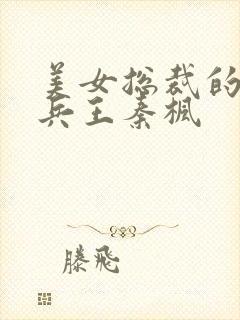 美女总裁的
兵王秦枫
滕飞